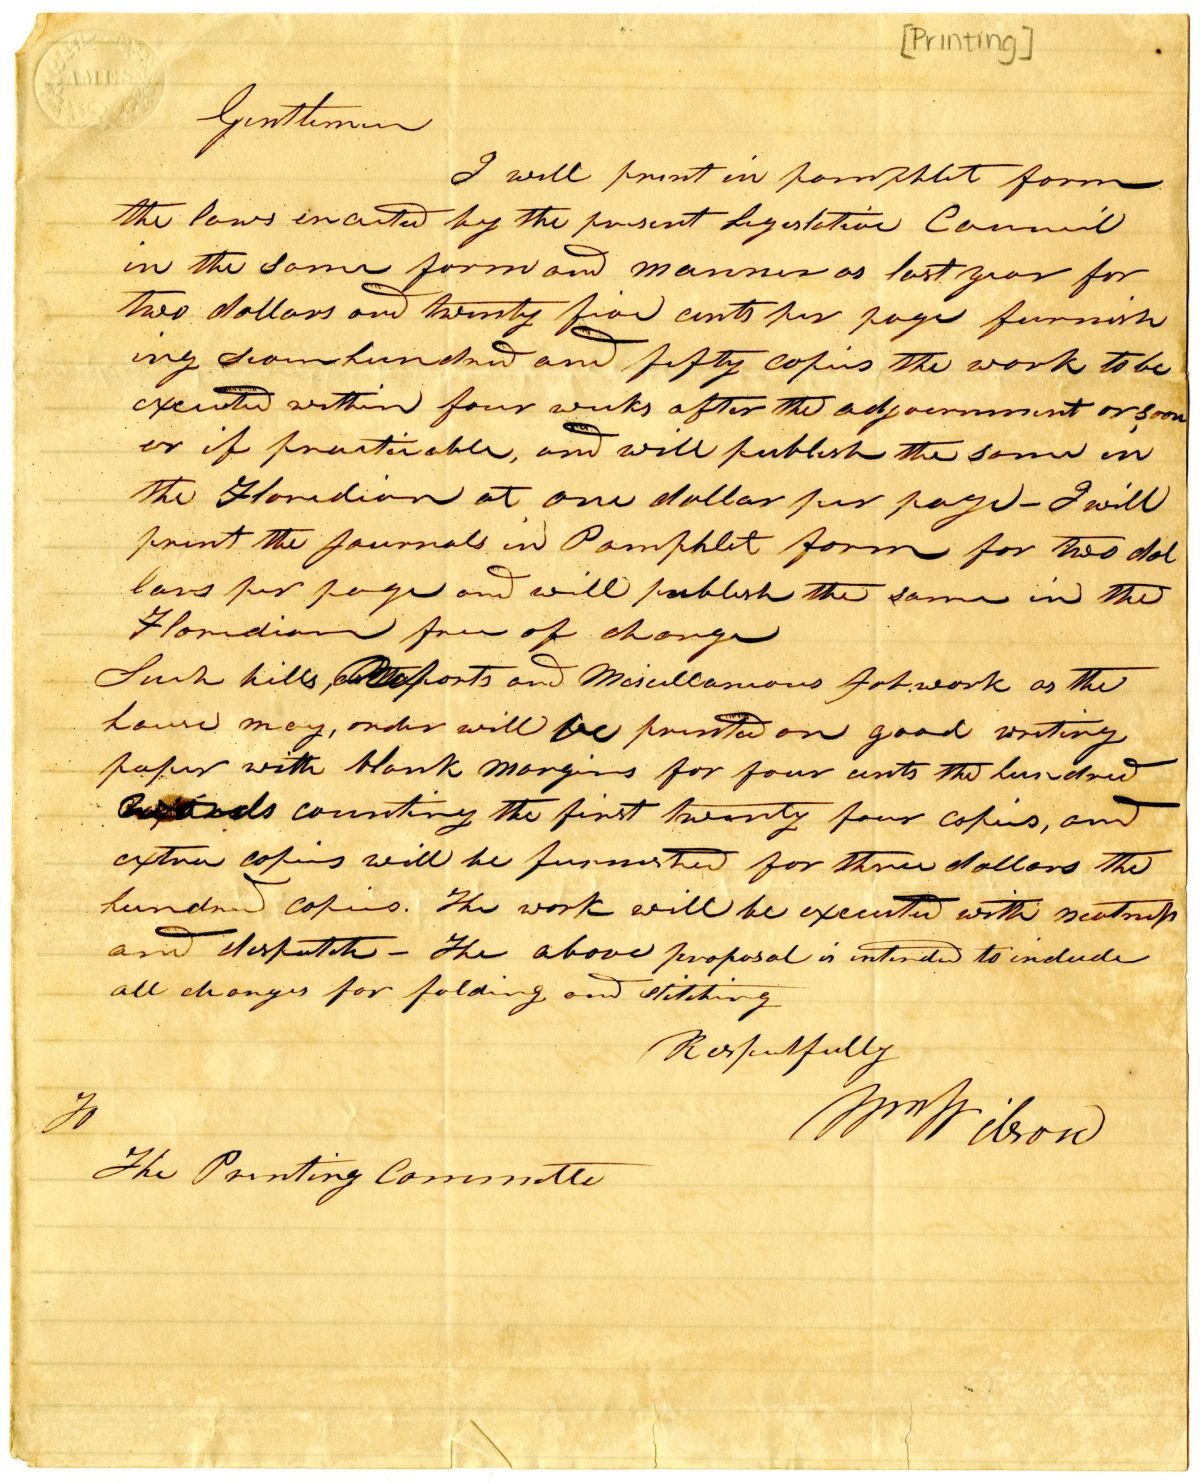 [Printing]
AMES
Gentlemen
I will print in pamphlet form
the laws enacted by the present Legislative Council
in the same form and manner as last year for
two dollars and twenty five cents per page furnish
ing seven hundred and fifty copies the work to be
executed within four weeks after the adjournment or soon
er if practicable, and will publish the same in
the Floridian at one dollar per page – I will
print the journals in Pamphlet form for two dol
lars per page and will publish the same in the
Floridian free of charge
Such bills, Reports and Miscellaneous Job work as the
house may, order will be printed on good writing
paper with blank margins for four cents the hundred
counting the first twenty four copies, and
extra copies will be furnished for three dollars the
hundred copies. The work will be executed with neatness
and despatch – The above proposal is intended to include
all charges for folding and stitching
Respectfully
Wm Wilson
To
The Printing Committee